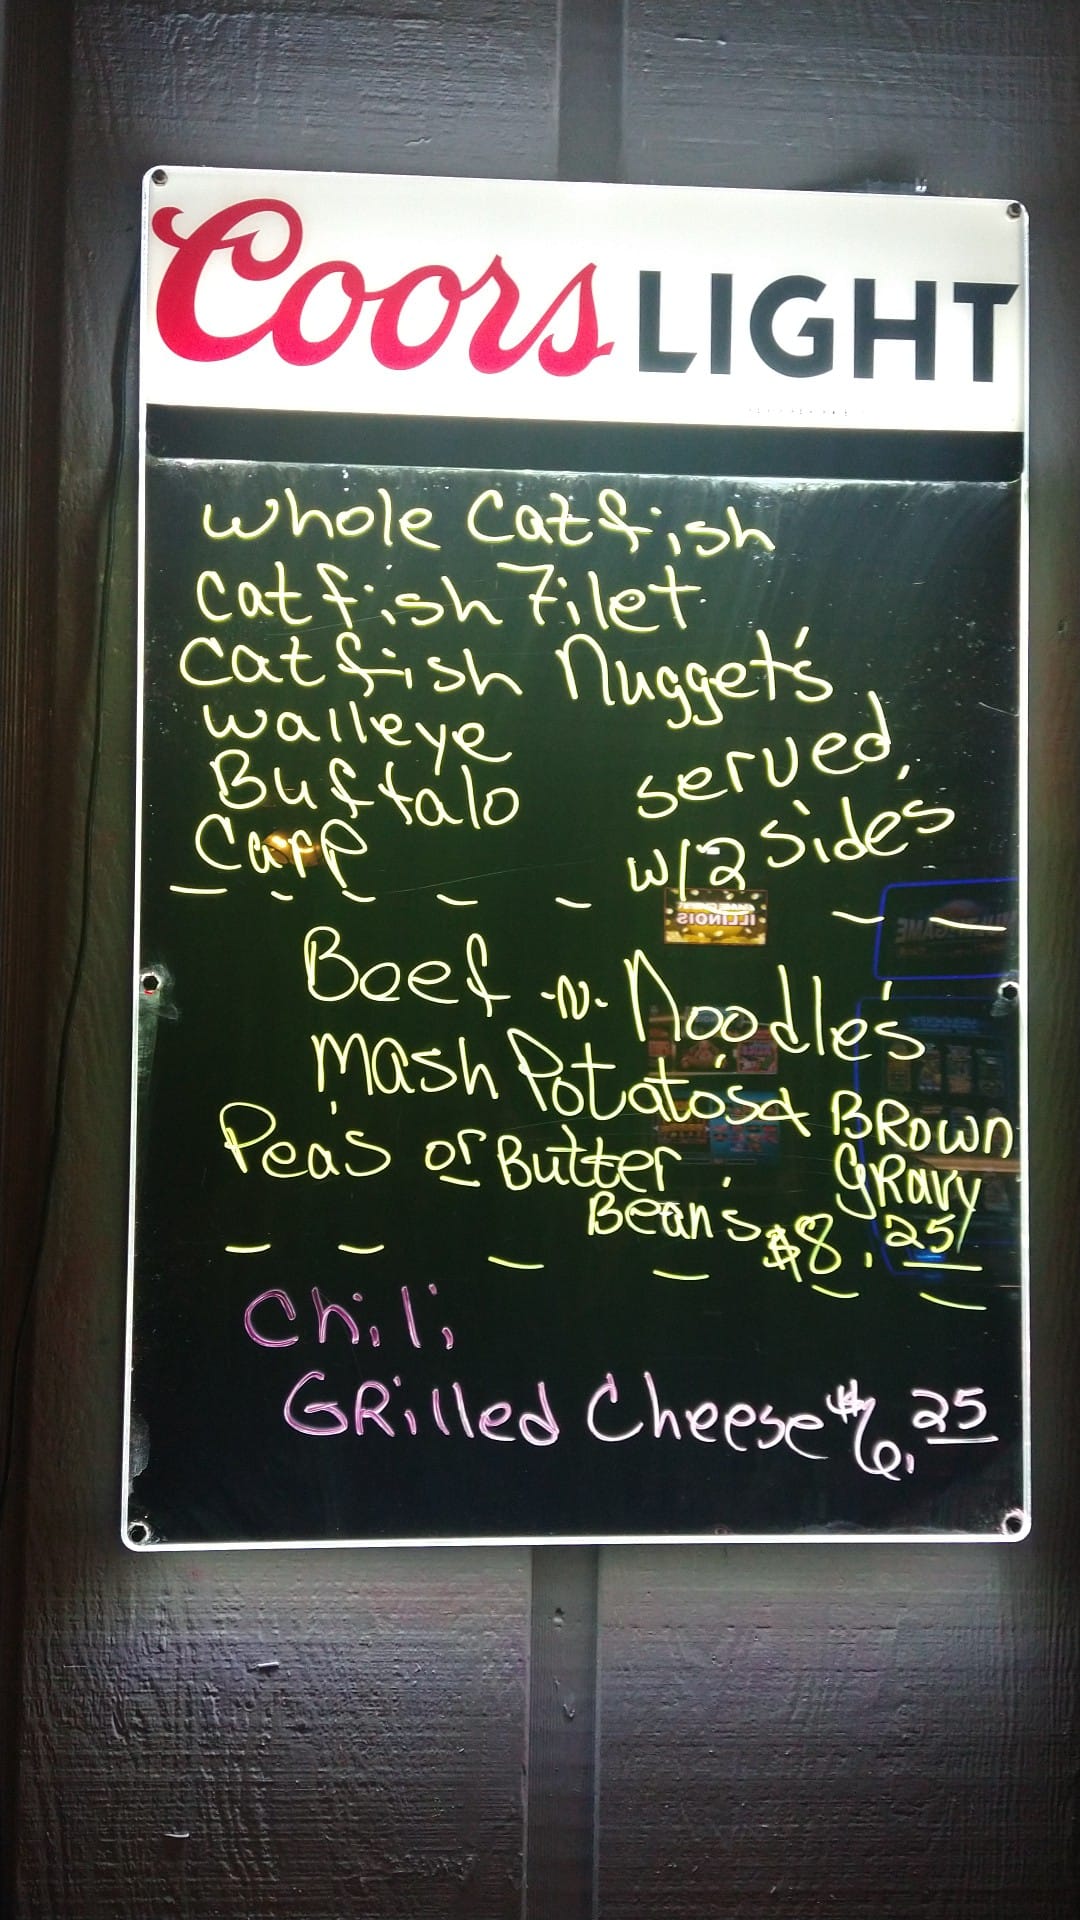 Coors LIGHT
whole Catfish
catfish Filet
catfish Nugget's
walleye
Buffalo
Carp
served
w/2 sides
Beef -N- Noodle's
Mash Potato's & BROWN GRavy
Peas or Butter Beans $8.25
Chili
GRilled Cheese $6.25
ILLINOIS